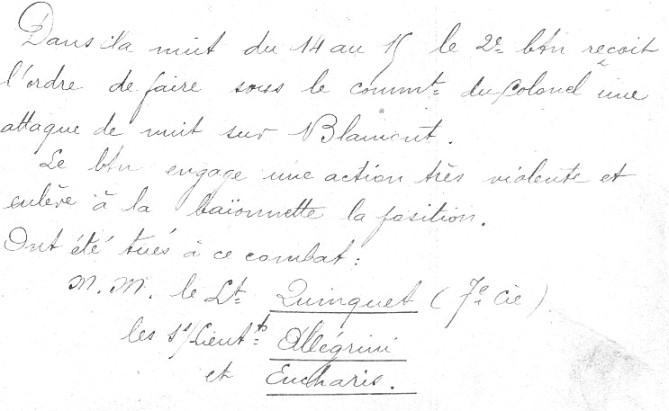 Dans la nuit du 14 au 15 le 2e btn reçoit
l'ordre de faire sous le commt du Colonel une
attaque de nuit sur Blamont.
Le btn engage une action très violente et
enlève à la baïonnette la position.
Ont été tués à ce combat :
M.M. le Lt Quinquet (7e Cie)
les s/Lieutts Allégrini
et Eucharis.